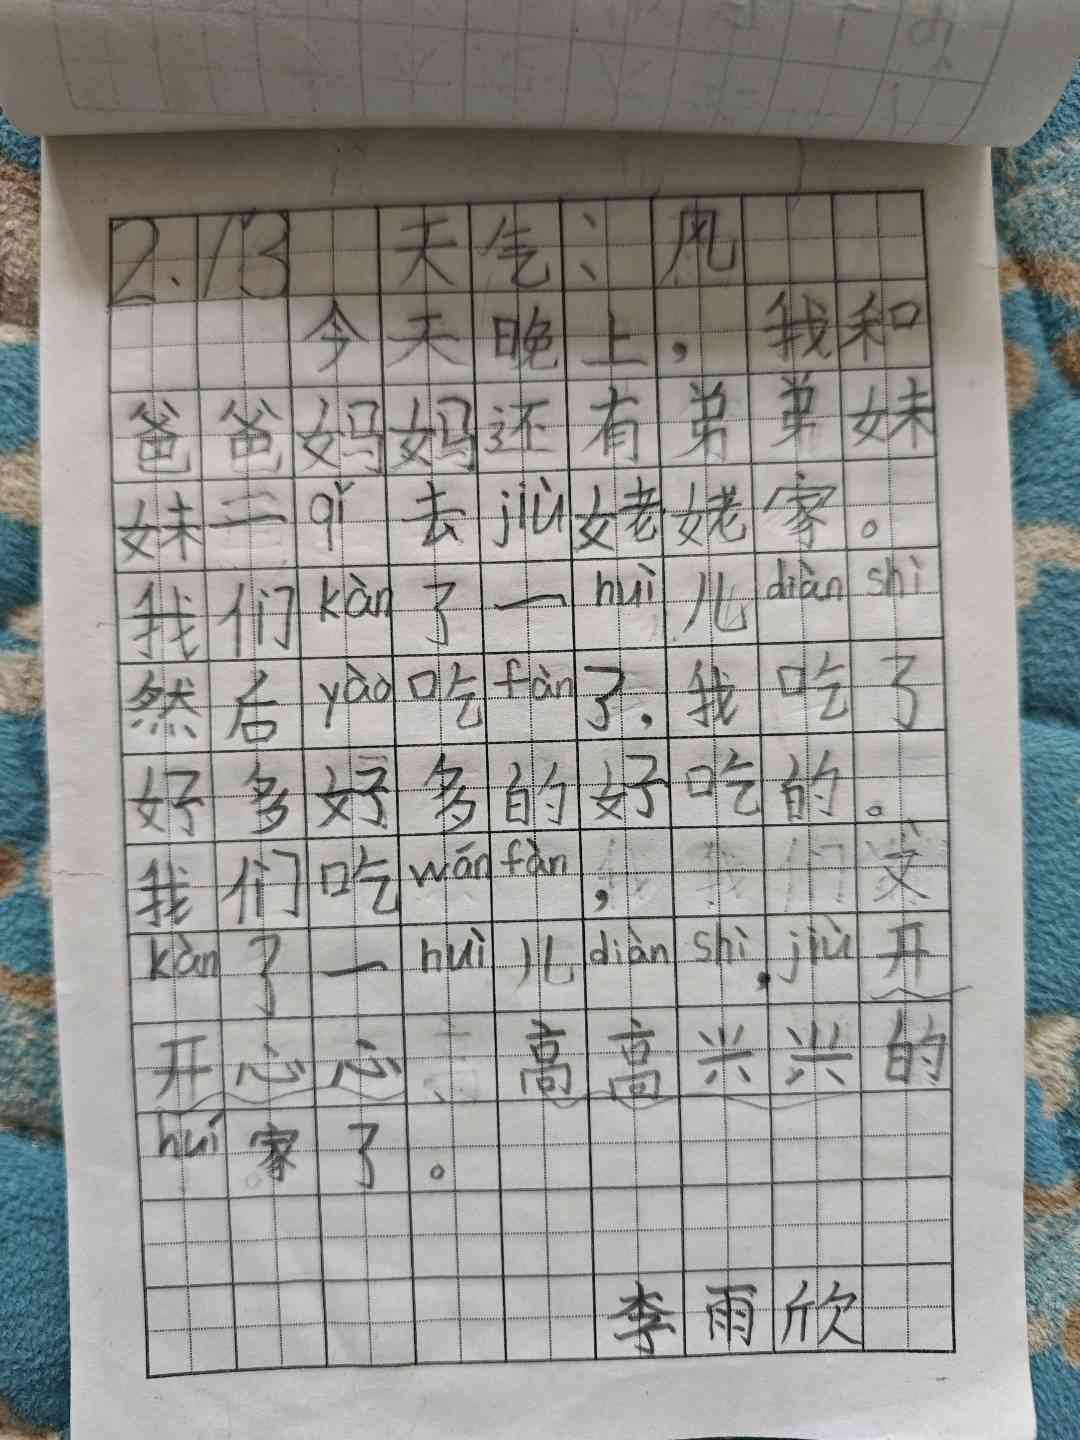 2.13 天气：风
今天晚上，我和
爸爸妈妈还有弟弟妹
妹一qǐ去jiù姥姥家。
我们kàn了一huì儿diàn shì
然后yào吃fàn了，我吃了
好多好多的好吃的。
我们吃wán fàn，又
kàn了一huì儿diàn shì，jiù开
开心心高高兴兴的
huí家了。
李雨欣